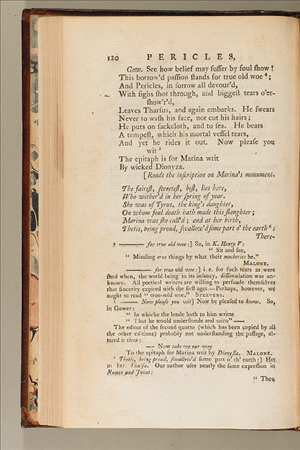 120 PERICLES,
Gow. See how belief may suffer by foul show!
This borrow'd passion stands for true old woe⁸;
And Pericles, in sorrow all devour'd,
With sighs shot through, and biggest tears o'er-
show'r'd,
Leaves Tharsus, and again embarks. He swears
Never to wash his face, nor cut his hairs;
He puts on sackcloth, and to sea. He bears
A tempest, which his mortal vessel tears,
And yet he rides it out. Now please you
wit⁹
The epitaph is for Marina writ
By wicked Dionyza.
[Reads the inscription on Marina's monument.
The fairest, sweetest, best, lies here,
Who wither'd in her spring of year.
She was of Tyrus, the king's daughter,
On whom foul death hath made this slaughter;
Marina was she call'd; and at her birth,
Thetis, being proud, swallow'd some part o' the earth¹:
There-
⁸ —— for true old woe:] So, in K. Henry V:
" Sit and see,
" Minding true things by what their mockeries be."
MALONE.
—— for true old woe:] i. e. for such tears as were
shed when, the world being in its infancy, dissimulation was un-
known. All poetical writers are willing to persuade themselves
that sincerity expired with the first ages.—Perhaps, however, we
ought to read " true-told woe." STEEVENS.
⁹ —— Now please you wit] Now be pleased to know. So,
in Gower:
" In whiche the lorde hath to him writte
" That he would understonde and witte"—
The editor of the second quarto (which has been copied by all
the other editions) probably not understanding the passage, al-
tered it thus:
—— Now take we our way
To the epitaph for Marina writ by Dionysia. MALONE.
¹ Thetis, being proud, swallow'd some part o' th' earth:]
Romeo and Juliet:
" The